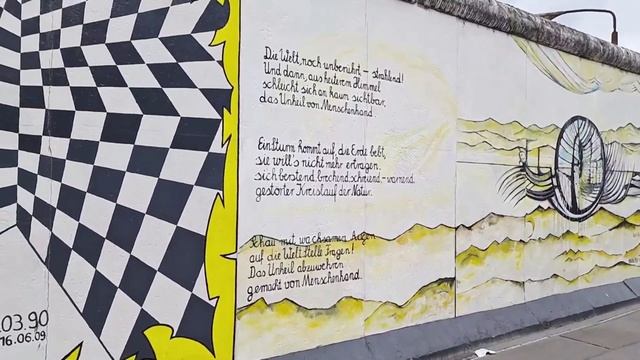 Die Welt, noch unberührt – strahlend!
Und dann, aus heiterem Himmel
schleicht sich an kaum sichtbar,
das Unheil von Menschenhand.
Ein Sturm kommt auf, die Erde bebt,
sie will's nicht mehr ertragen,
sich berstend, brechend, schreiend, – warnend.
gestörter Kreislauf der Natur.
Schau mit wachsamen Augen
auf die Welt Stelle Fragen!
Das Unheil abzuwehren
gemacht von Menschenhand.
03.90
16.06.09